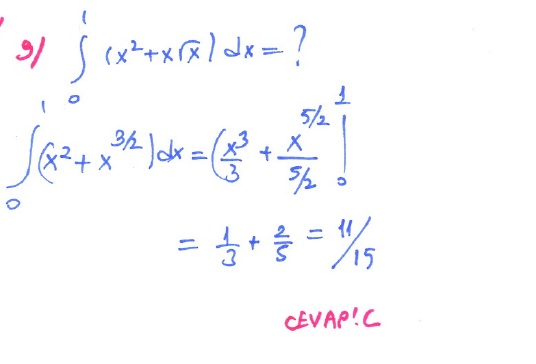 9) ∫₀¹ (x² + x√x) dx = ?
∫₀¹ (x² + x^{3/2}) dx = (x³/3 + x^{5/2}/(5/2) |₀¹
= 1/3 + 2/5 = 11/15
CEVAP: C